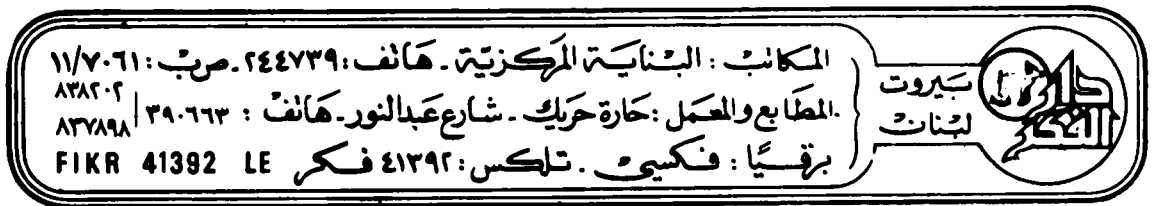 دار الفكر
بيروت
لبنان
المكاتب : البناية المركزية . هاتف : ٢٤٤٧٣٩ . ص ب : ١١/٧٠٦١
المطابع والمعمل : حارة حريك . شارع عبد النور . هاتف : ٣٩٠٦٦٣ / ٨٣٨٢٠٢
٨٣٧٨٩٨
برقيًا : فكسي . تلكس : ٤١٣٩٢ فكر FIKR 41392 LE